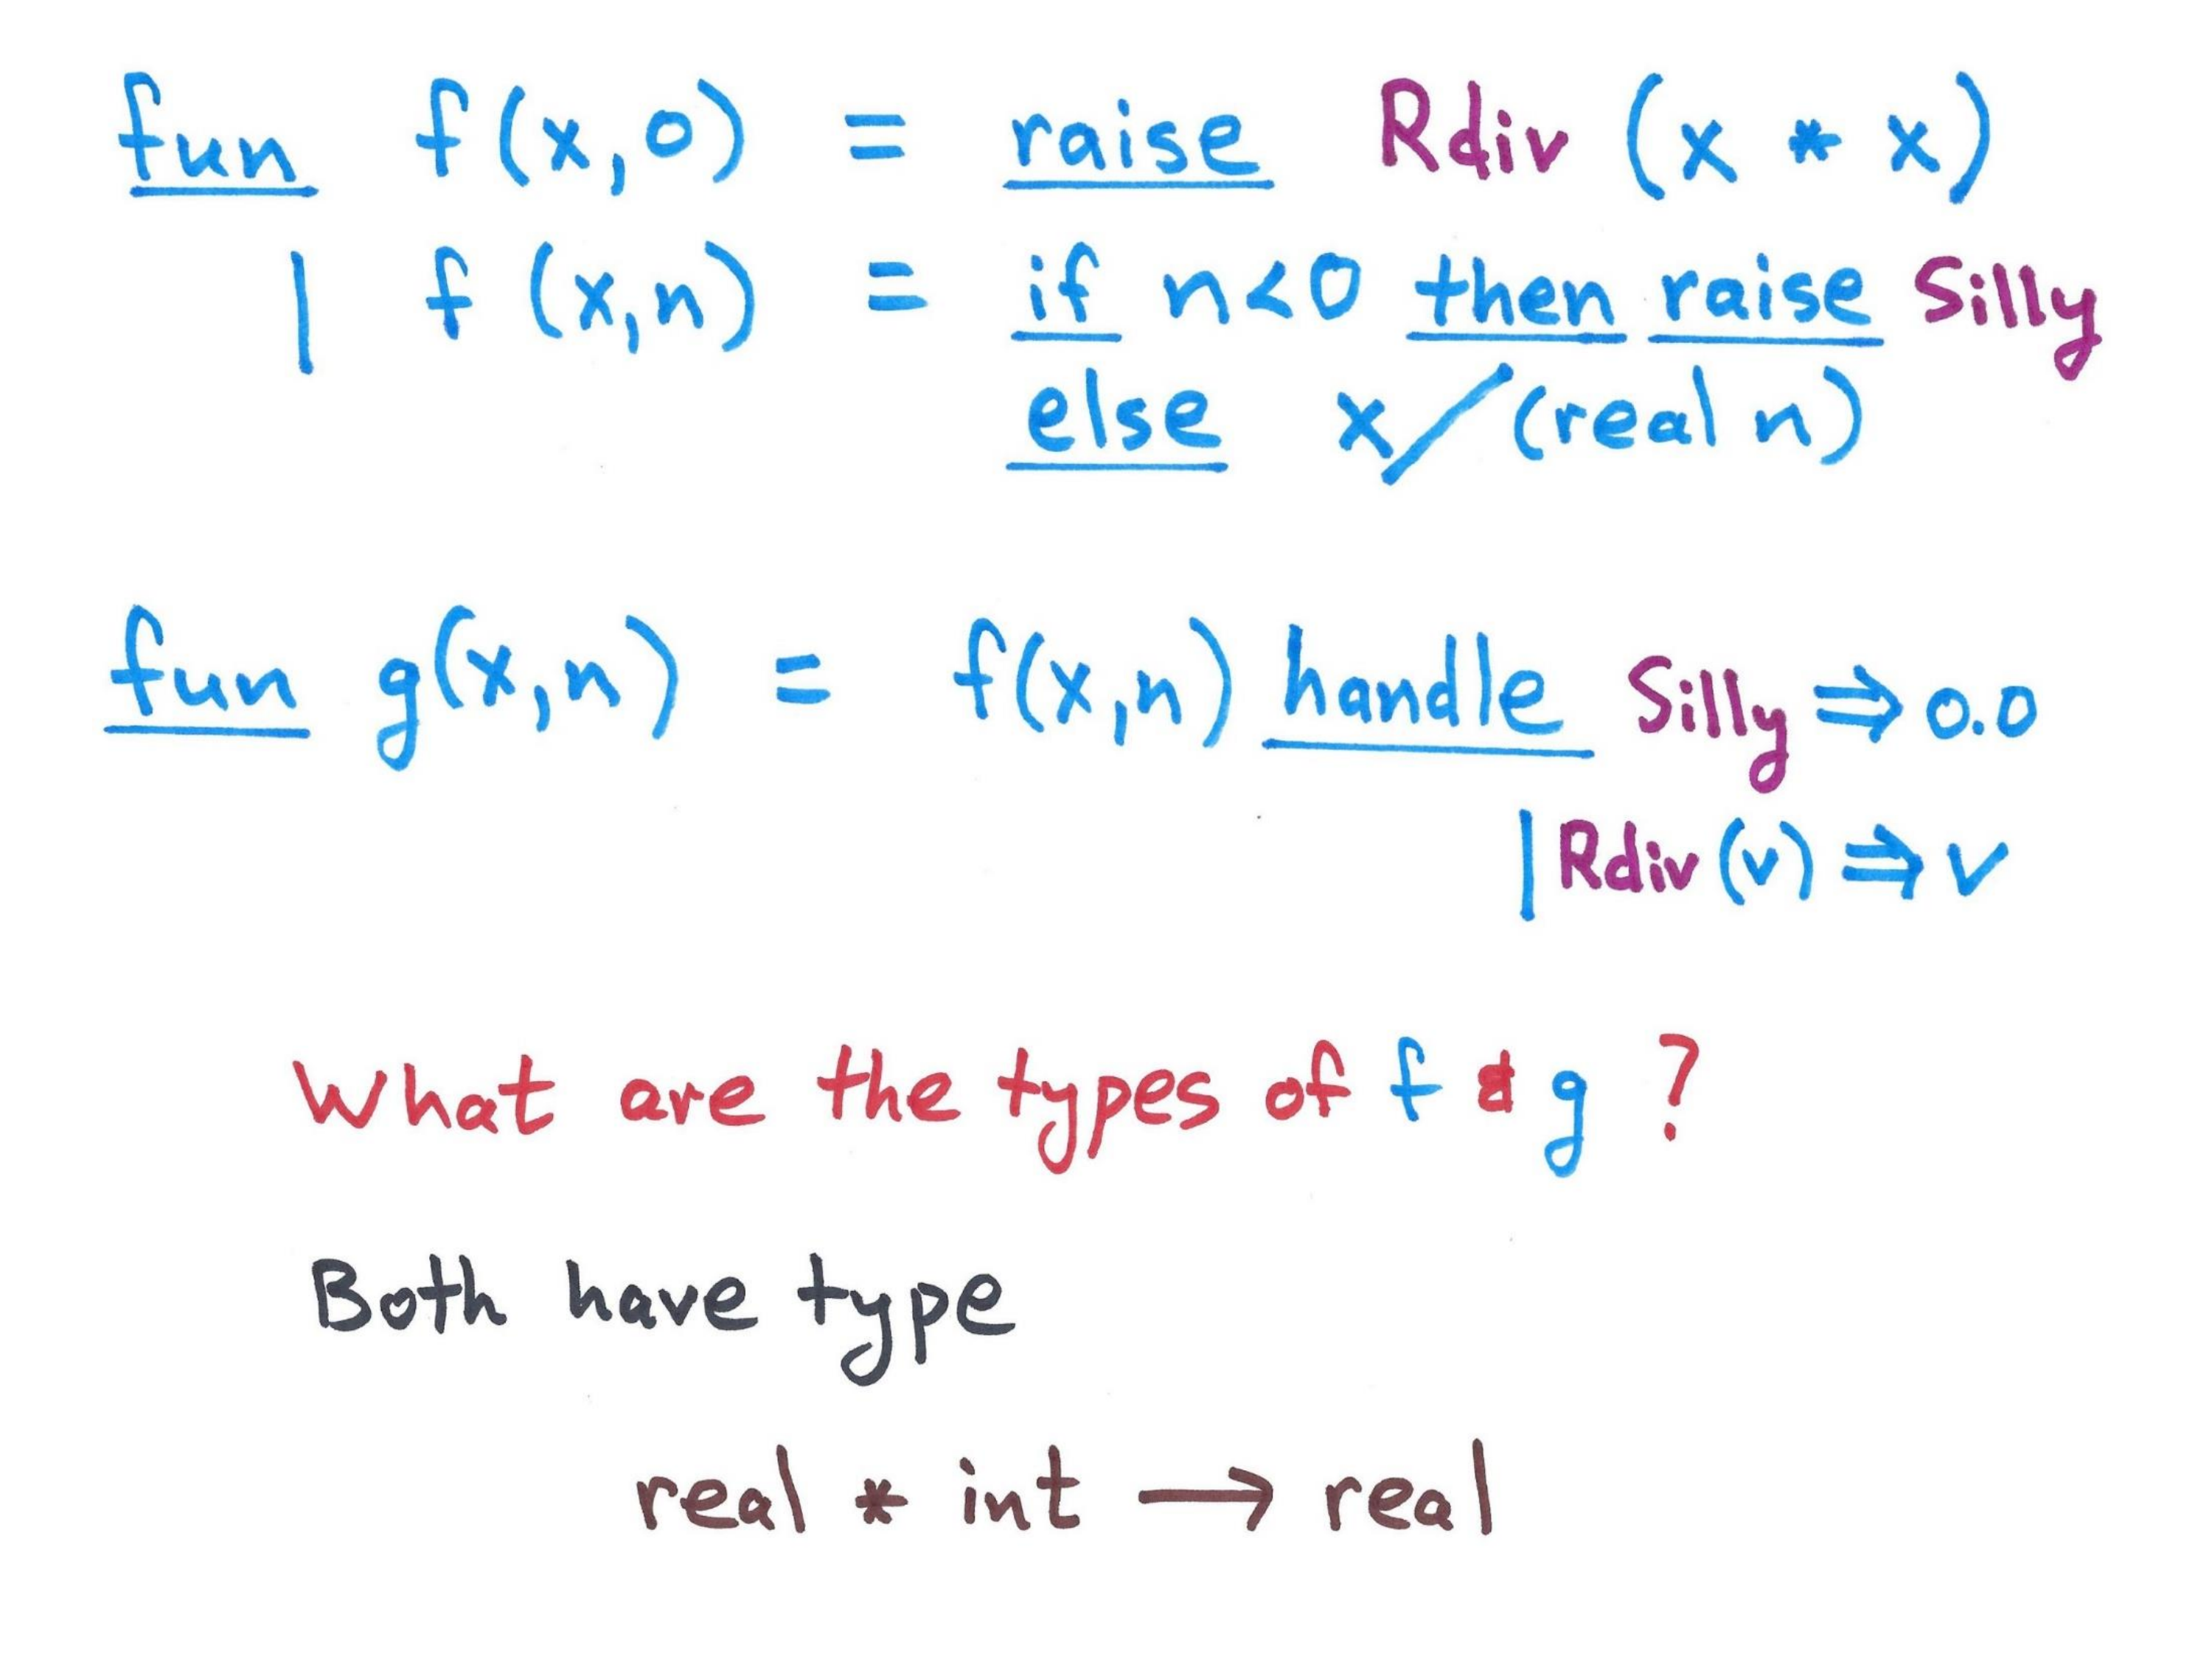 fun f(x,0) = raise Rdiv (x * x)
| f (x,n) = if n<0 then raise Silly
else x/(real n)
fun g(x,n) = f(x,n) handle Silly ⇒ 0.0
| Rdiv (v) ⇒ v
What are the types of f & g ?
Both have type
real * int → real